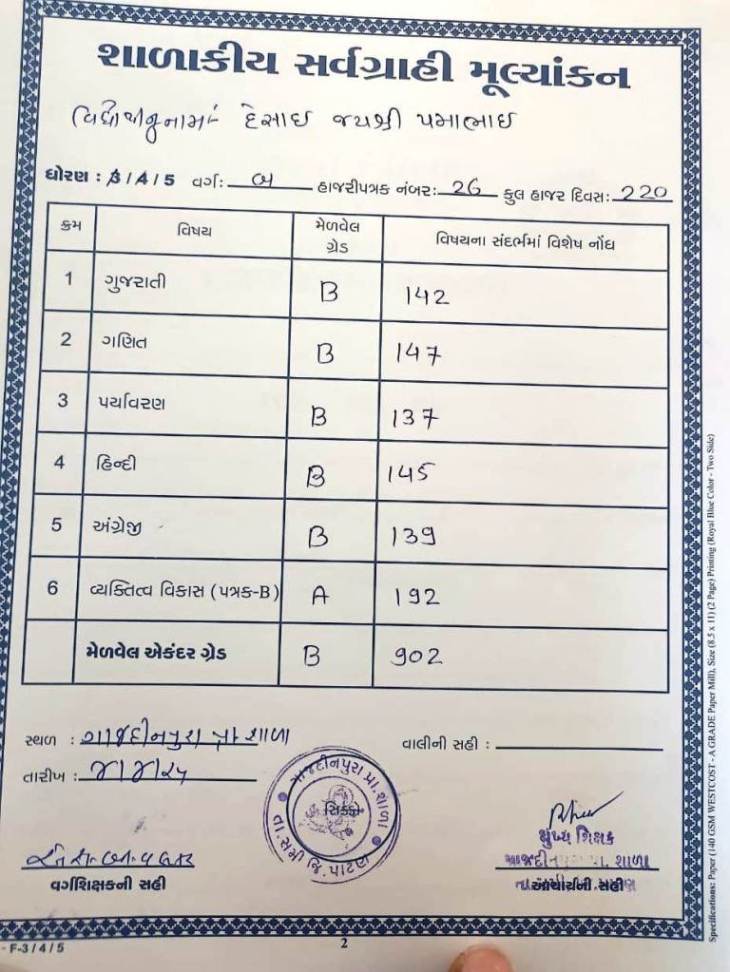 શાળાકીય સર્વગ્રાહી મૂલ્યાંકન
દેસાઈ જયશ્રી પમાભાઈ
ધોરણ : 3 / 4 / 5 વર્ગ: બ હાજરીપત્રક નંબર: 26 કુલ હાજર દિવસ: 220
ક્રમ વિષય મેળવેલ ગ્રેડ વિષયના સંદર્ભમાં વિશેષ નોંધ
1 ગુજરાતી B 142
2 ગણિત B 147
3 પર્યાવરણ B 137
4 હિન્દી B 145
5 અંગ્રેજી B 139
6 વ્યક્તિત્વ વિકાસ (પત્રક-B) A 192
મેળવેલ એકંદર ગ્રેડ B 902
સ્થળ : ગાજદીનપુરા પ્રા શાળા
વાલીની સહી :
તારીખ :
ગાજદીનપુરા પ્રા. શાળા
સિક્કો
તા. સમી જિ. પાટણ
મુખ્ય શિક્ષક
ગાજદીનપુરા પ્રા. શાળા
વર્ગશિક્ષકની સહી
આચાર્યની સહી
- F-3 / 4 / 5
2
Specifications: Paper (140 GSM WESTCOST - A GRADE Paper Mill), Size (8.5 x 11) (2 Page) Printing (Royal Blue Color - Two Side)